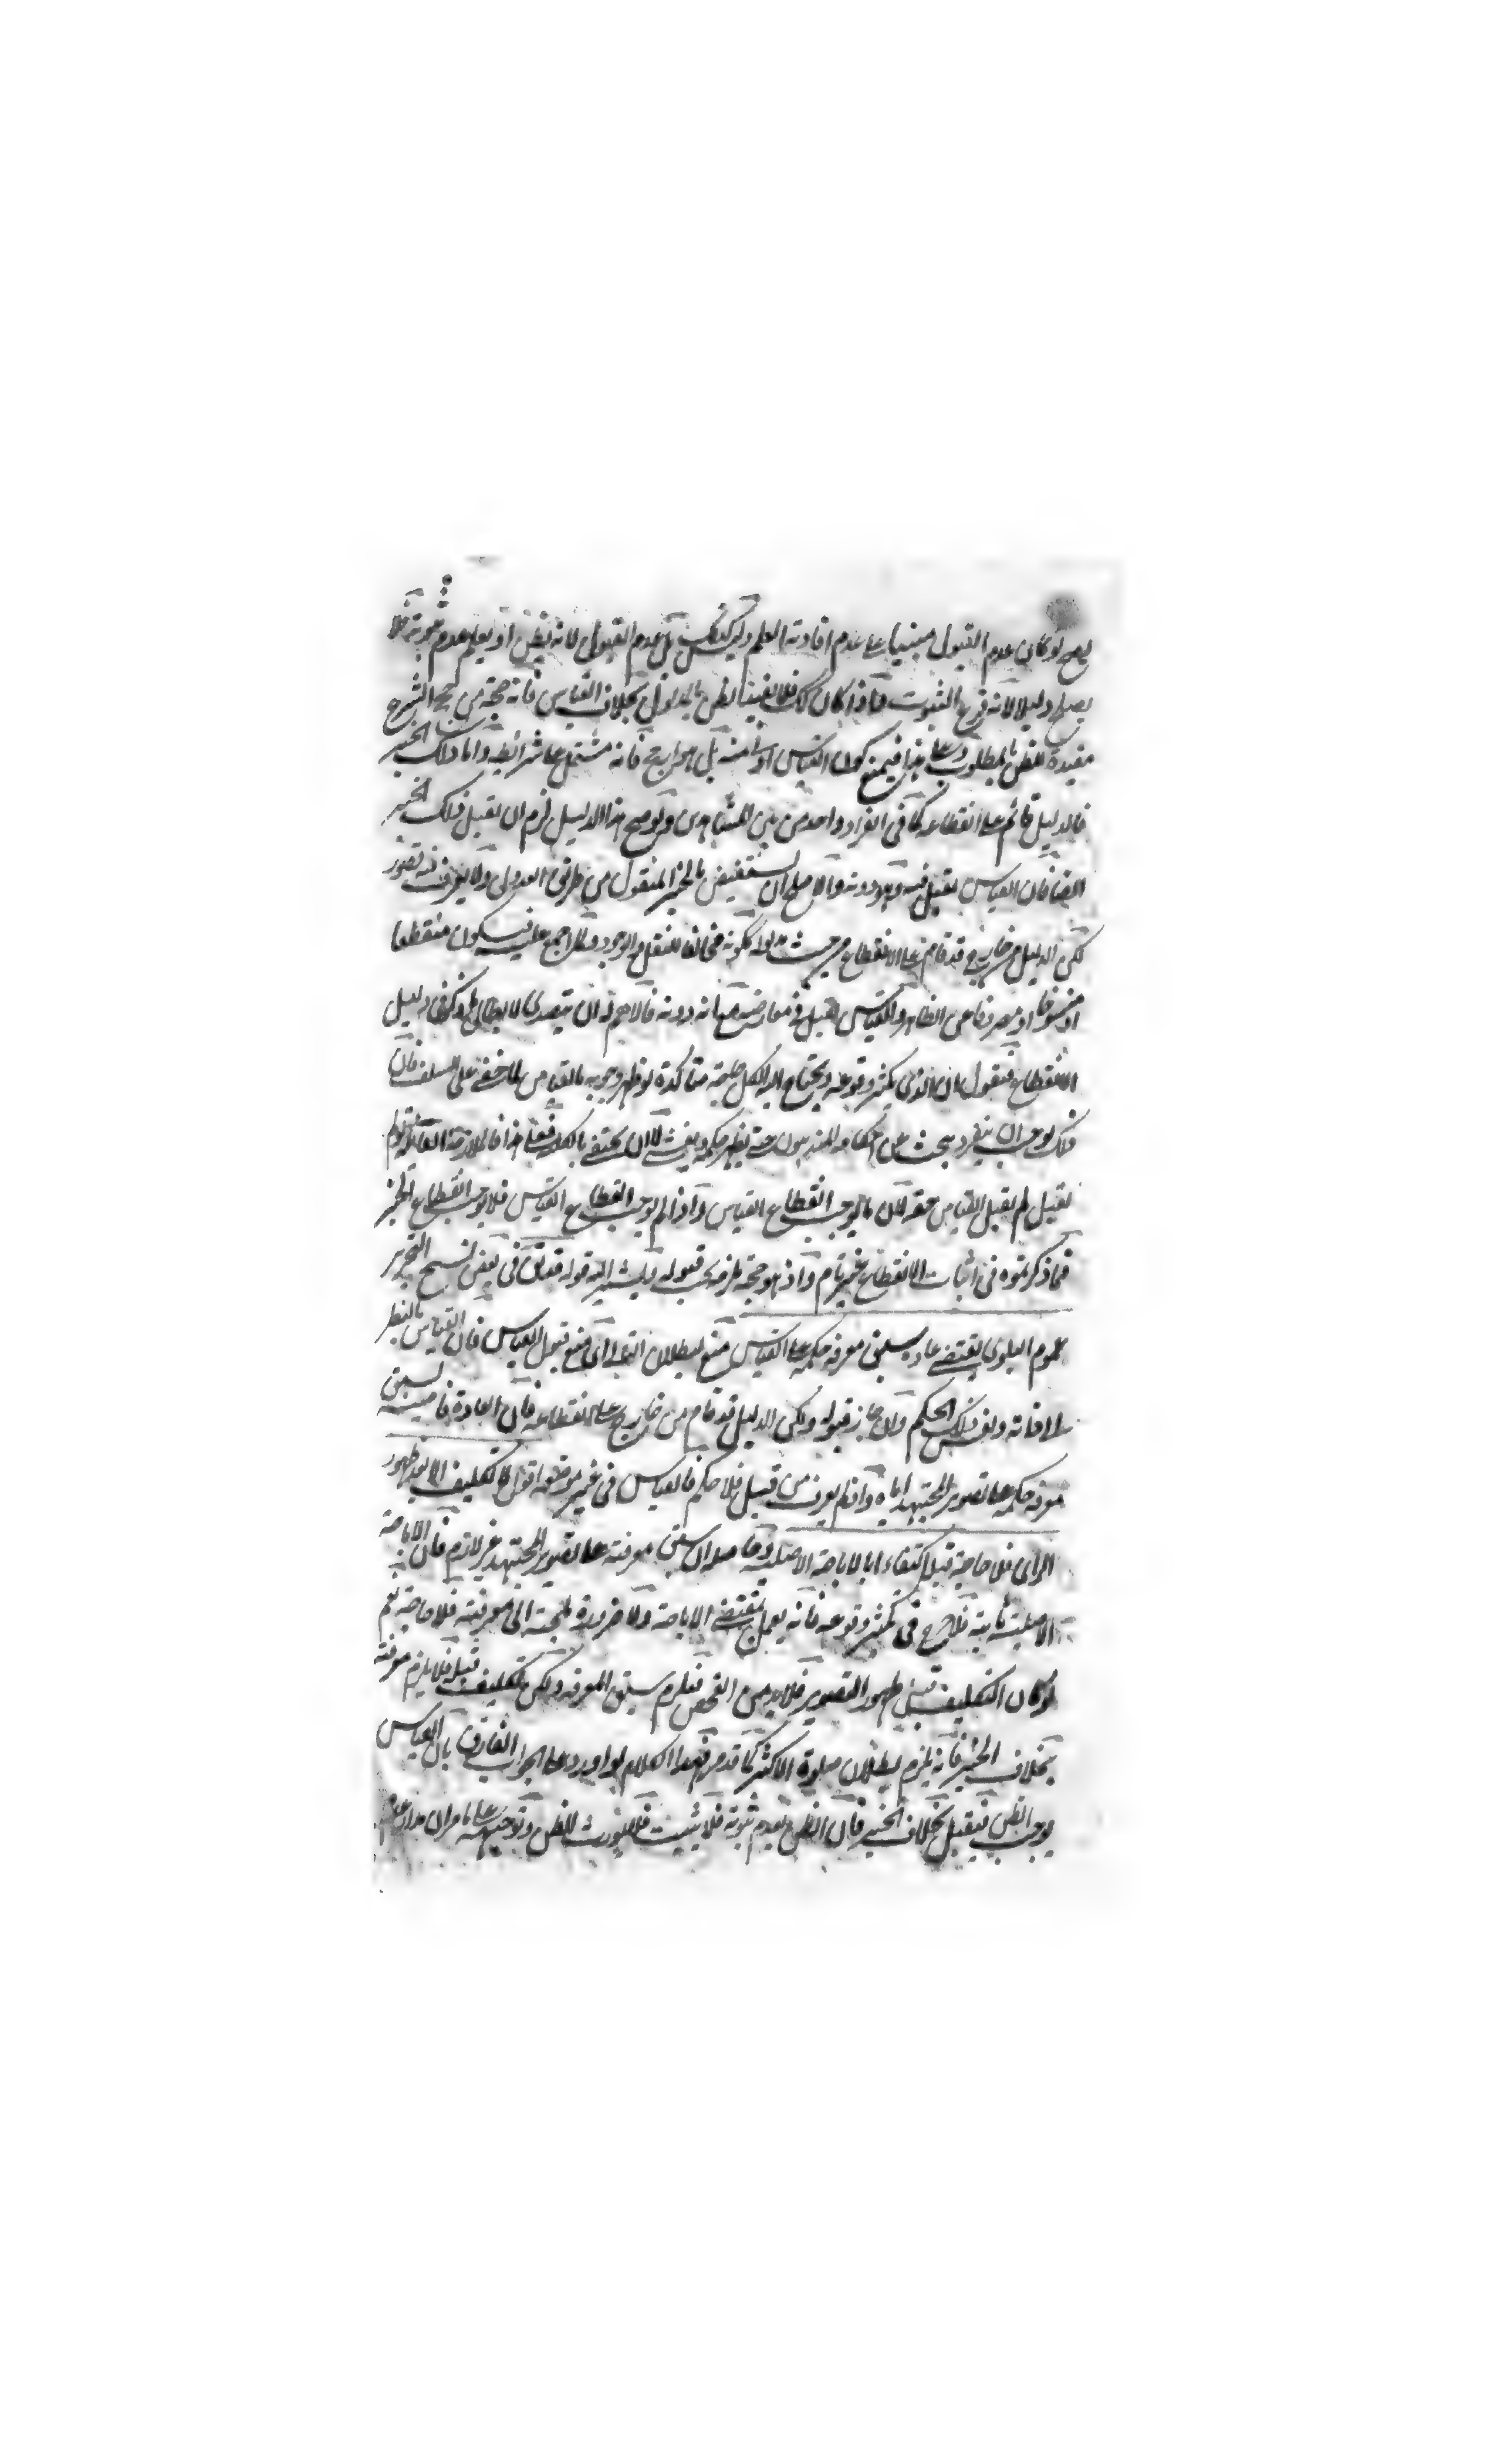 يصح لو كان عدم القبول مبنيا على عدم افادته العلم وليس كذلك بل عدم القبول لانه يظن او يعلم عدم ثبوته فلا
يصلح دليلا لانه فرع الثبوت فاذا كان كذلك فلا يفيد الظن بالمدلول بخلاف القياس فانه حجة من حجج الشرع
مفيدة للظن بالمطلوب وعلى هذا فيمنع كون القياس ادون منه بل هو ارجح فانه مشتمل على شرائطه واما ذلك الخبر
فالدليل قائم على انقطاعه كما في انفراد واحد من بين المشاهدين ولو صح هذا الدليل لزم ان يقبل ذلك الخبر
ايضا فان القياس يقبل فيه وهو دونه والاصل ان بالخبر المنقول من طريق العدول ولا يعرف فيه قصور
لكن الدليل من خارج قد قام على الانقطاع من حيث مدلوله ككونه مخالفا للعقل والوجود وكل اجمع عليه فيكون منقطعا
او منسوخا او مصروفا عن الظاهر والقياس يقبل في معارضته مع انه دونه فالاهم له ان يتصدى لابطال ما ذكر في دليل
الانقطاع فنقول ان الذي يكثر وقوعه ويحتاج اليه الكل حاجة متأكدة لو ظهر وجوبه بالقياس لما خفي على السلف فان
ذلك يوجب ان ينفرد بحث عن احكامه المتدينون حتى يظهر حكمه ويفشى لا ان يكتفى بالكل فعلى هذا فالملازمة القائلة لو لم
يقبل لم يقبل القياس حقة لان ما يوجب انقطاع القياس واذا لم يوجب انقطاع القياس فلا يوجب انقطاع الخبر
فما ذكرتموه في اثبات الانقطاع غير تام واذ هو حجة ملزمة يجب قبوله ويشير اليه قوله قدس في بعض نسخ التحرير
عموم البلوى يقتضي عادة سبق معرفة حكمه على القياس منع لبطلان التالي اي منع قبول القياس فان القياس بالنظر
الى ذاته ونفس ذلك الحكم وان جاز قبوله ولكن الدليل قد قام من خارج على انقطاعه فان العادة قاضية لسبق
معرفة حكمه على تصوير المجتهد اياه واذا لم يعرف من قبل فلا حكم فالقياس في غير موضعه اقول لا تكليف الا بعد ظهور
الرأي فلا حاجة قبل اكتفاء بالاباحة الاصلية وحاصله ان سبق معرفته على تصوير المجتهد غير لازم فان الاباحة
الاصلية ثابتة فلا حرج في تكثر وقوعه فانه يعمل بمقتضى الاباحة ولا ضرورة ملجئة الى معرفته فلا حاجة نعم
لو كان التكليف قبل ظهور التصوير فلا بد من الفحص فيلزم سبق المعرفة ولكن لا تكليف قبله فلا يلزم معرفته
بخلاف الخبر فانه يلزم بطلان صلوة الاكثر كما قدمر فهذا الكلام لو اورد على الجواب الفارق بان القياس
يوجب الظن فيقبل بخلاف الخبر فان الظن بعدم ثبوته فلا يثبت فلا يورث الظن وتوجيهه على ما مر ان مدار علم